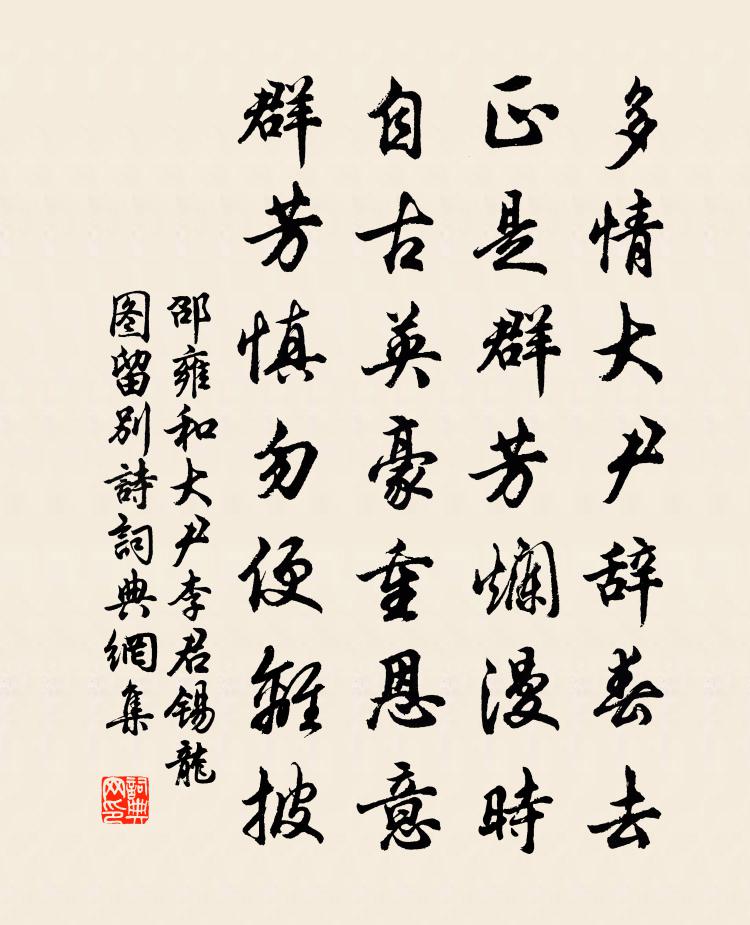 多情大尹辞春去
正是群芳爛漫時
自古英豪重恩意
群芳慎勿便離披
邵雍和大尹李君锡龍
图留别詩詞典網集
詞典网印